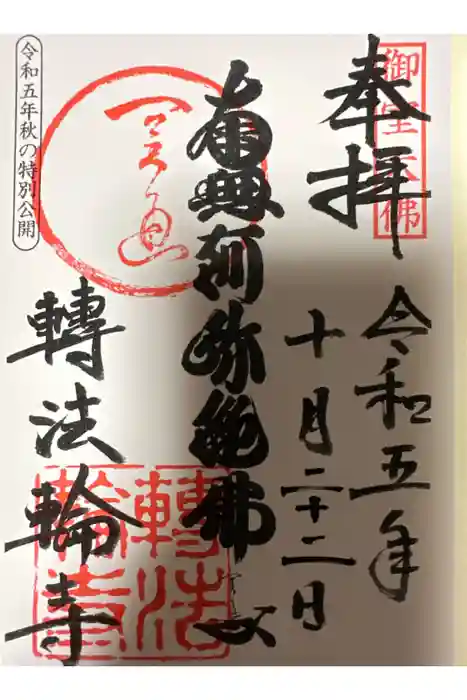 奉拝
御室大佛
令和五年
十月二十二日
南無阿弥陀佛
轉法輪寺
轉法輪寺
令和五年秋の特別公開